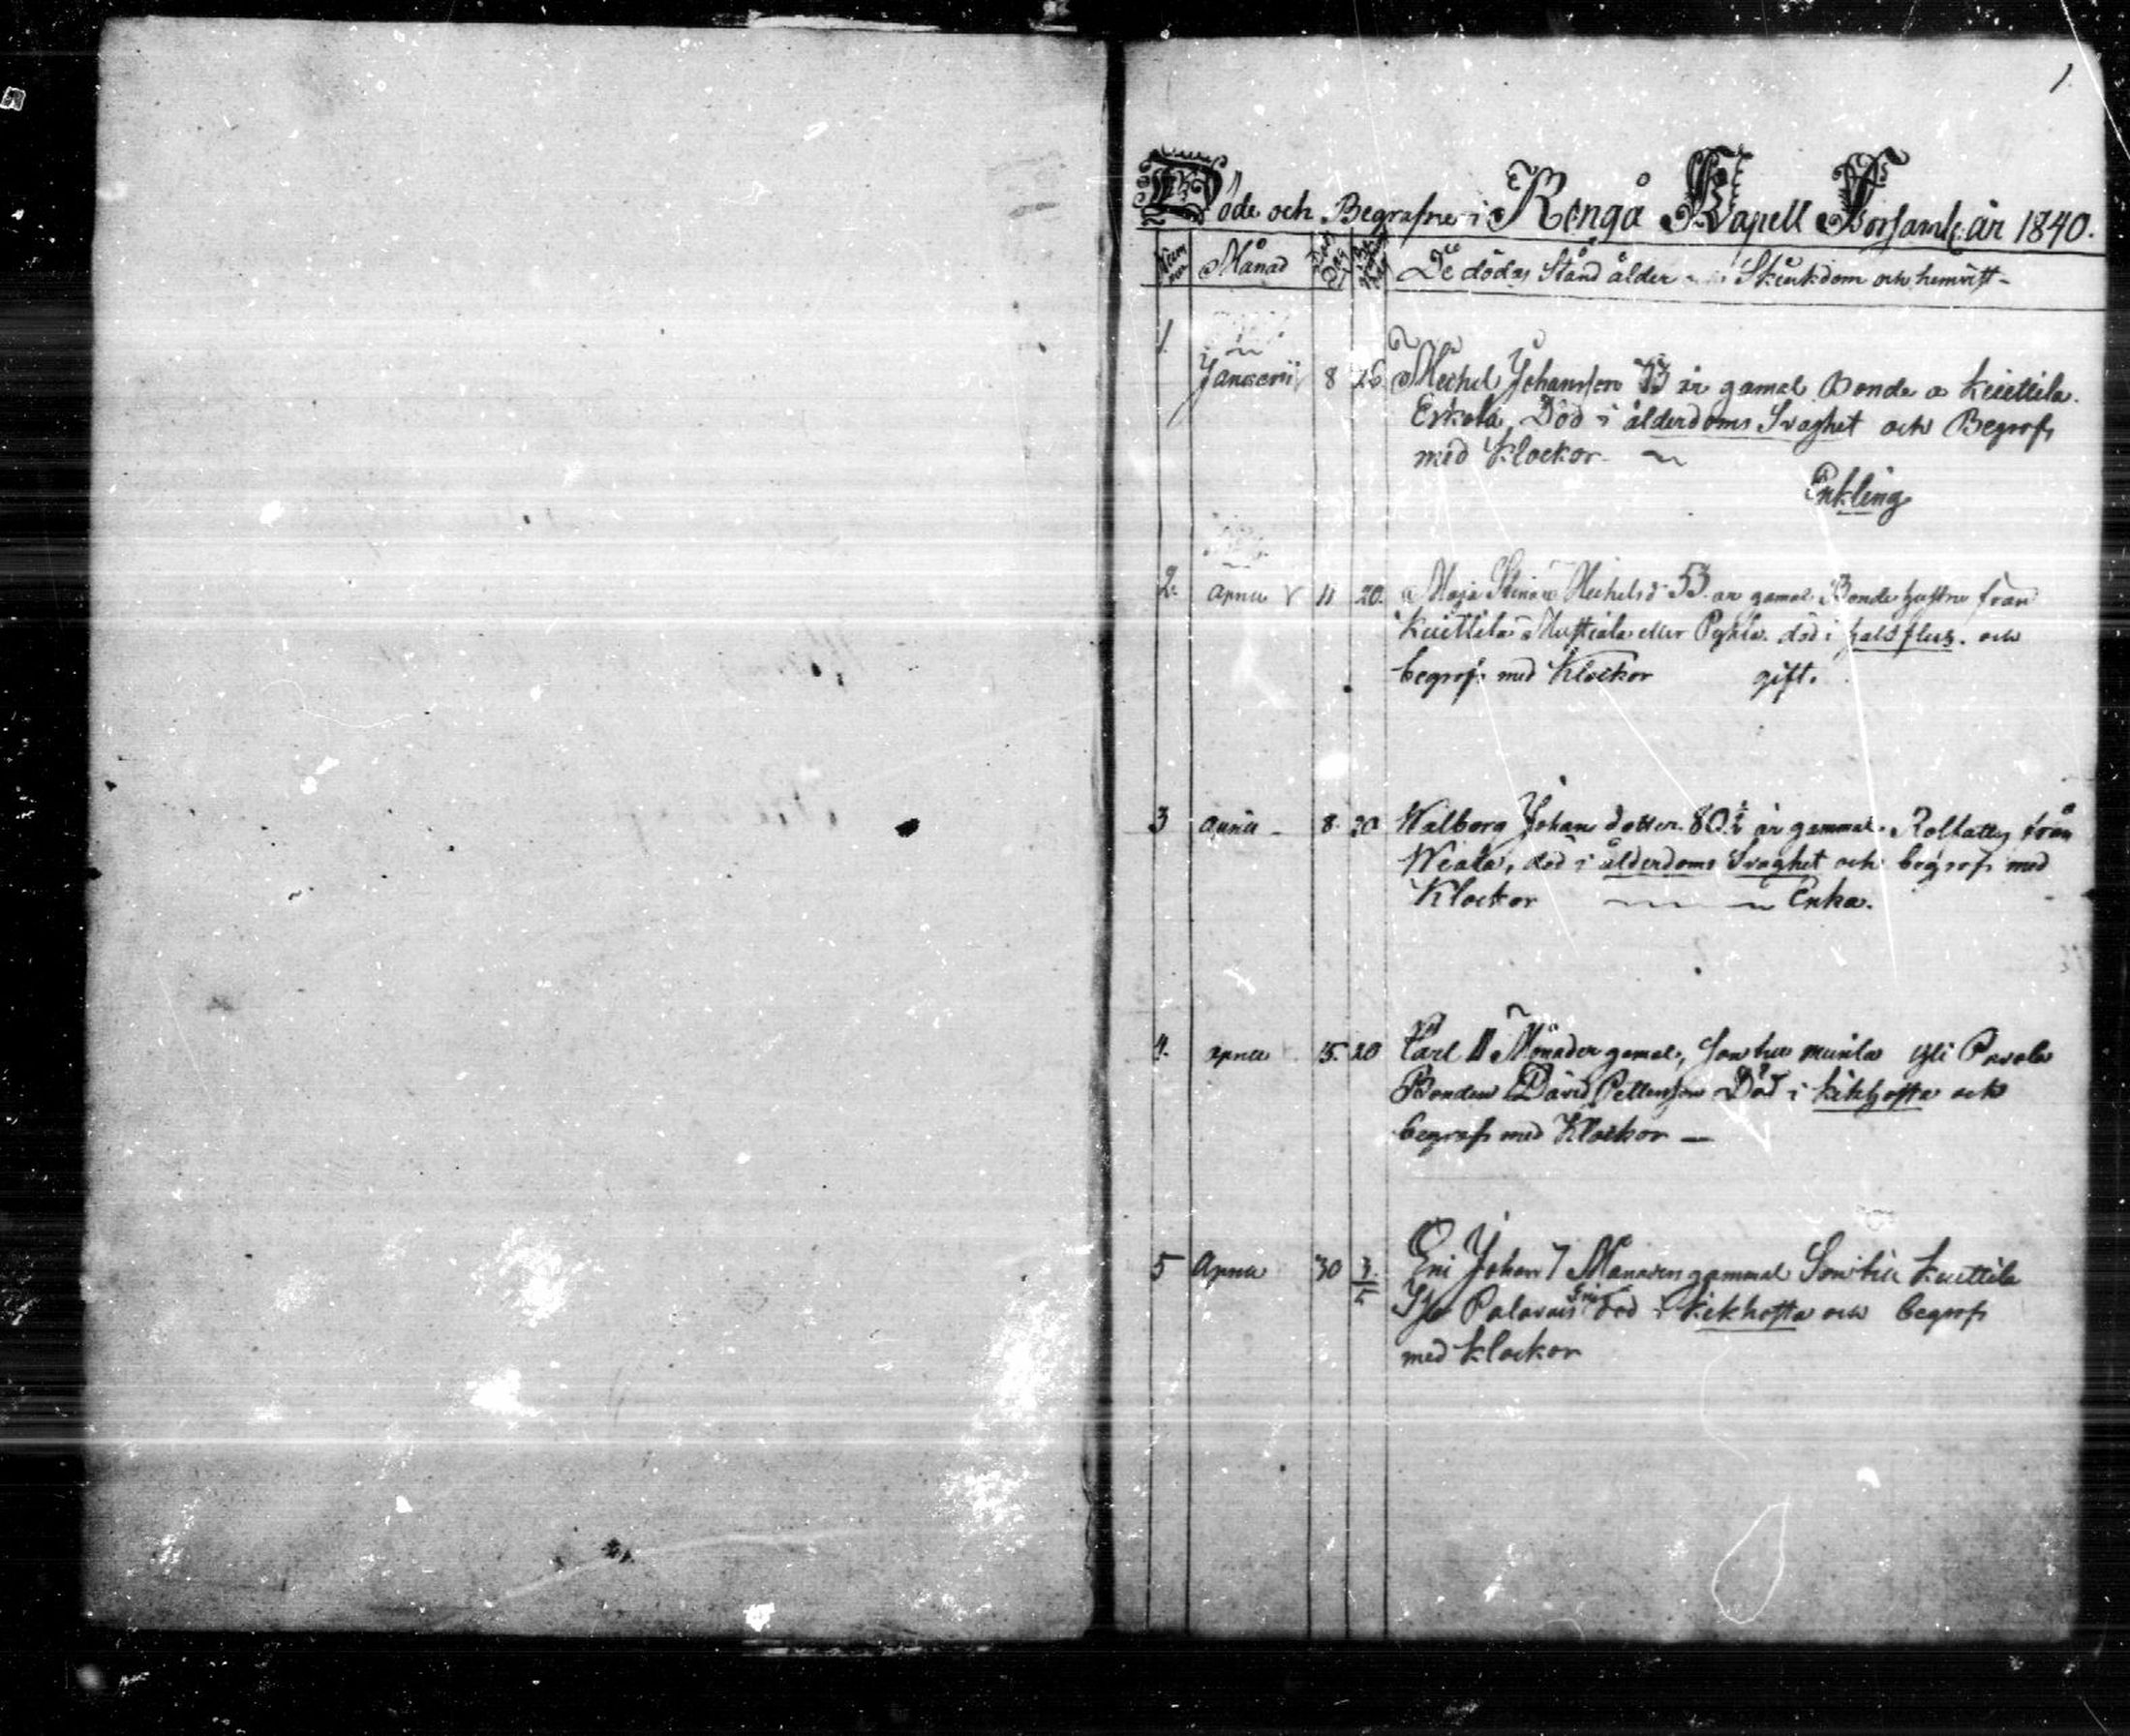 1.
Döde och Begrafne i Rengå Kapell Församl: år 1840.
Månad De dödas Stånd ålder Skiukdom och hemvist -
1. Januarii 8 26 Michel Johansson 73 år gamal Bonde a Keiettila
Eskola, Död i ålderdoms Svaghet och Begrofs
med Klockor
Enkling
2. April 11 20. Maja Stina Michelsd: 53 år gamal Bonde hustru från
Kuittila Mustiala eller Pyhla. död i halsfluss. och
begrofs med Klockor gift.
3 April - 8. 20 Walborg Johans dotter. 80 1/2 år gammal. Rotfattig från
Wiala, död i ålderdoms Svaghet och begrofs med
Klockor Enka.
4. April 15. 20 Carl 11 Månader gamal, Son till Yli Pavola
Bonden David Pettersson Död i kikhosta och
begrofs med Klockor —
5 April 30 3/5 Eric Johan 7 Månader gammal Son till Kuittila
död i Kikhosta och begrofs
med klockor